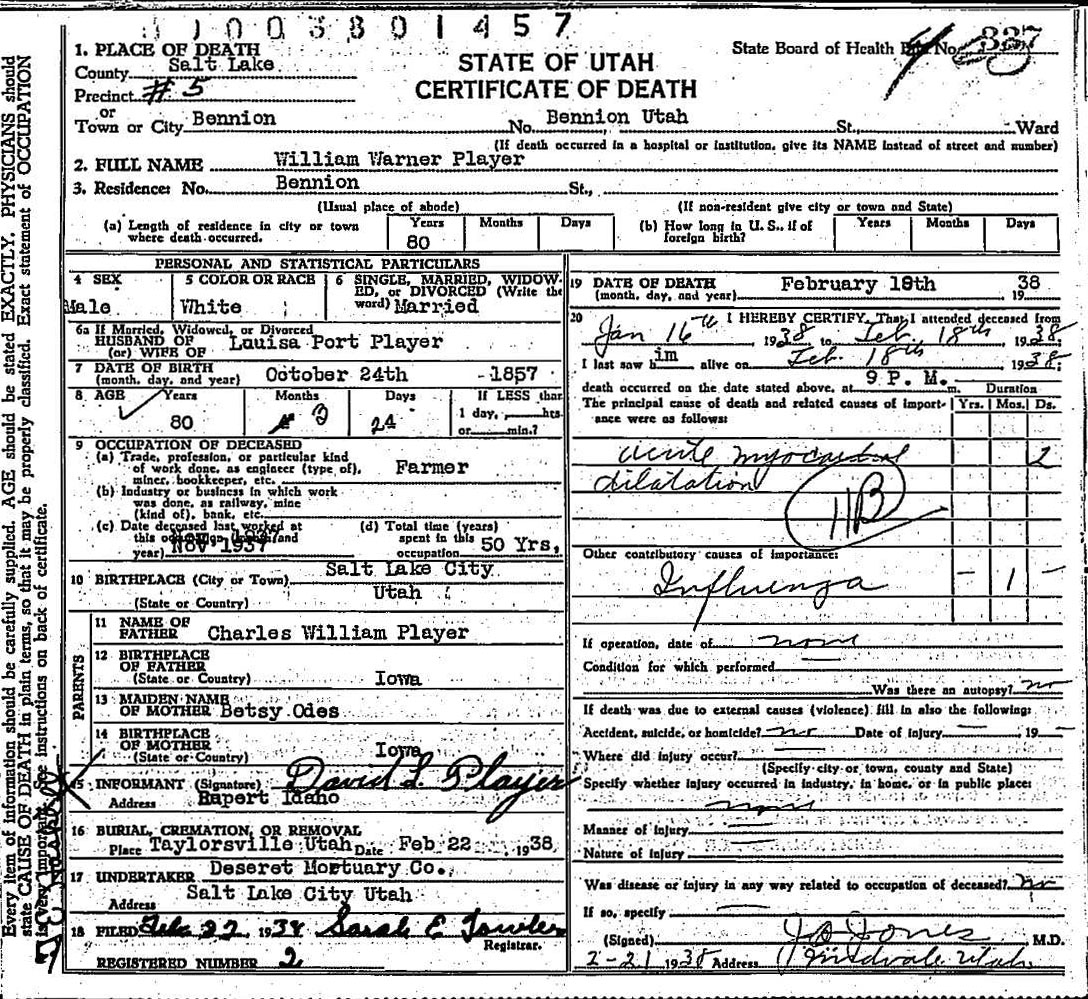 1003801457
1. PLACE OF DEATH
County Salt Lake
Precinct # 5
or
Town or City Bennion
STATE OF UTAH
CERTIFICATE OF DEATH
State Board of Health File No. 337
No. Bennion Utah St., Ward
(If death occurred in a hospital or institution, give its NAME instead of street and number)
2. FULL NAME William Warner Player
3. Residence: No. Bennion St.,
(Usual place of abode) (If non-resident give city or town and State)
(a) Length of residence in city or town where death occurred. Years 80 Months Days
(b) How long in U. S., if of foreign birth? Years Months Days
PERSONAL AND STATISTICAL PARTICULARS
4 SEX Male
5 COLOR OR RACE White
6 SINGLE, MARRIED, WIDOWED, or DIVORCED (Write the word) Married
6a If Married, Widowed, or Divorced
HUSBAND OF
(or) WIFE OF Louisa Port Player
7 DATE OF BIRTH
(month, day, and year) October 24th -1857
8 AGE Years 80 Months 3 Days 24
If LESS than
1 day, hrs.
or min.?
9 OCCUPATION OF DECEASED
(a) Trade, profession, or particular kind
of work done, as engineer (type of),
miner, bookkeeper, etc. Farmer
(b) Industry or business in which work
was done, as railway, mine
(kind of), bank, etc.
(c) Date deceased last worked at
this occupation (month and
year) Nov 1937
(d) Total time (years)
spent in this
occupation 50 Yrs,
10 BIRTHPLACE (City or Town) Salt Lake City
(State or Country) Utah
PARENTS
11 NAME OF
FATHER Charles William Player
12 BIRTHPLACE
OF FATHER
(State or Country) Iowa
13 MAIDEN NAME
OF MOTHER Betsy Odes
14 BIRTHPLACE
OF MOTHER
(State or Country) Iowa
15 INFORMANT (Signature) David L. Player
Address Rupert Idaho
16 BURIAL, CREMATION, OR REMOVAL
Place Taylorsville Utah Date Feb 22 1938
17 UNDERTAKER Deseret Mortuary Co.
Address Salt Lake City Utah
18 FILED Feb 22 1938 Sarah E Fowler
Registrar.
REGISTERED NUMBER 2
19 DATE OF DEATH
(month, day, and year) February 18th 19 38
20 I HEREBY CERTIFY, That I attended deceased from
Jan 16th, 1938 to Feb 18th, 1938;
I last saw him alive on Feb. 18th, 1938;
death occurred on the date stated above, at 9 P. M. m.
Duration
The principal cause of death and related causes of importance were as follows: Yrs. Mos. Ds.
acute myocardial 2
dilatation
Other contributory causes of importance:
Influenza - 1 -
If operation, date of none
Condition for which performed
Was there an autopsy? no
If death was due to external causes (violence) fill in also the following:
Accident, suicide, or homicide? no Date of injury — 19 —
Where did injury occur?
(Specify city or town, county and State)
Specify whether injury occurred in industry, in home, or in public place:
none
Manner of injury
Nature of injury
Was disease or injury in any way related to occupation of deceased? no
If so, specify
(Signed) Jones M.D.
2-21 1938 Address Midvale Utah
Every item of information should be carefully supplied. AGE should be stated EXACTLY. PHYSICIANS should
state CAUSE OF DEATH in plain terms, so that it may be properly classified. Exact statement of OCCUPATION
is very important. See instructions on back of certificate.